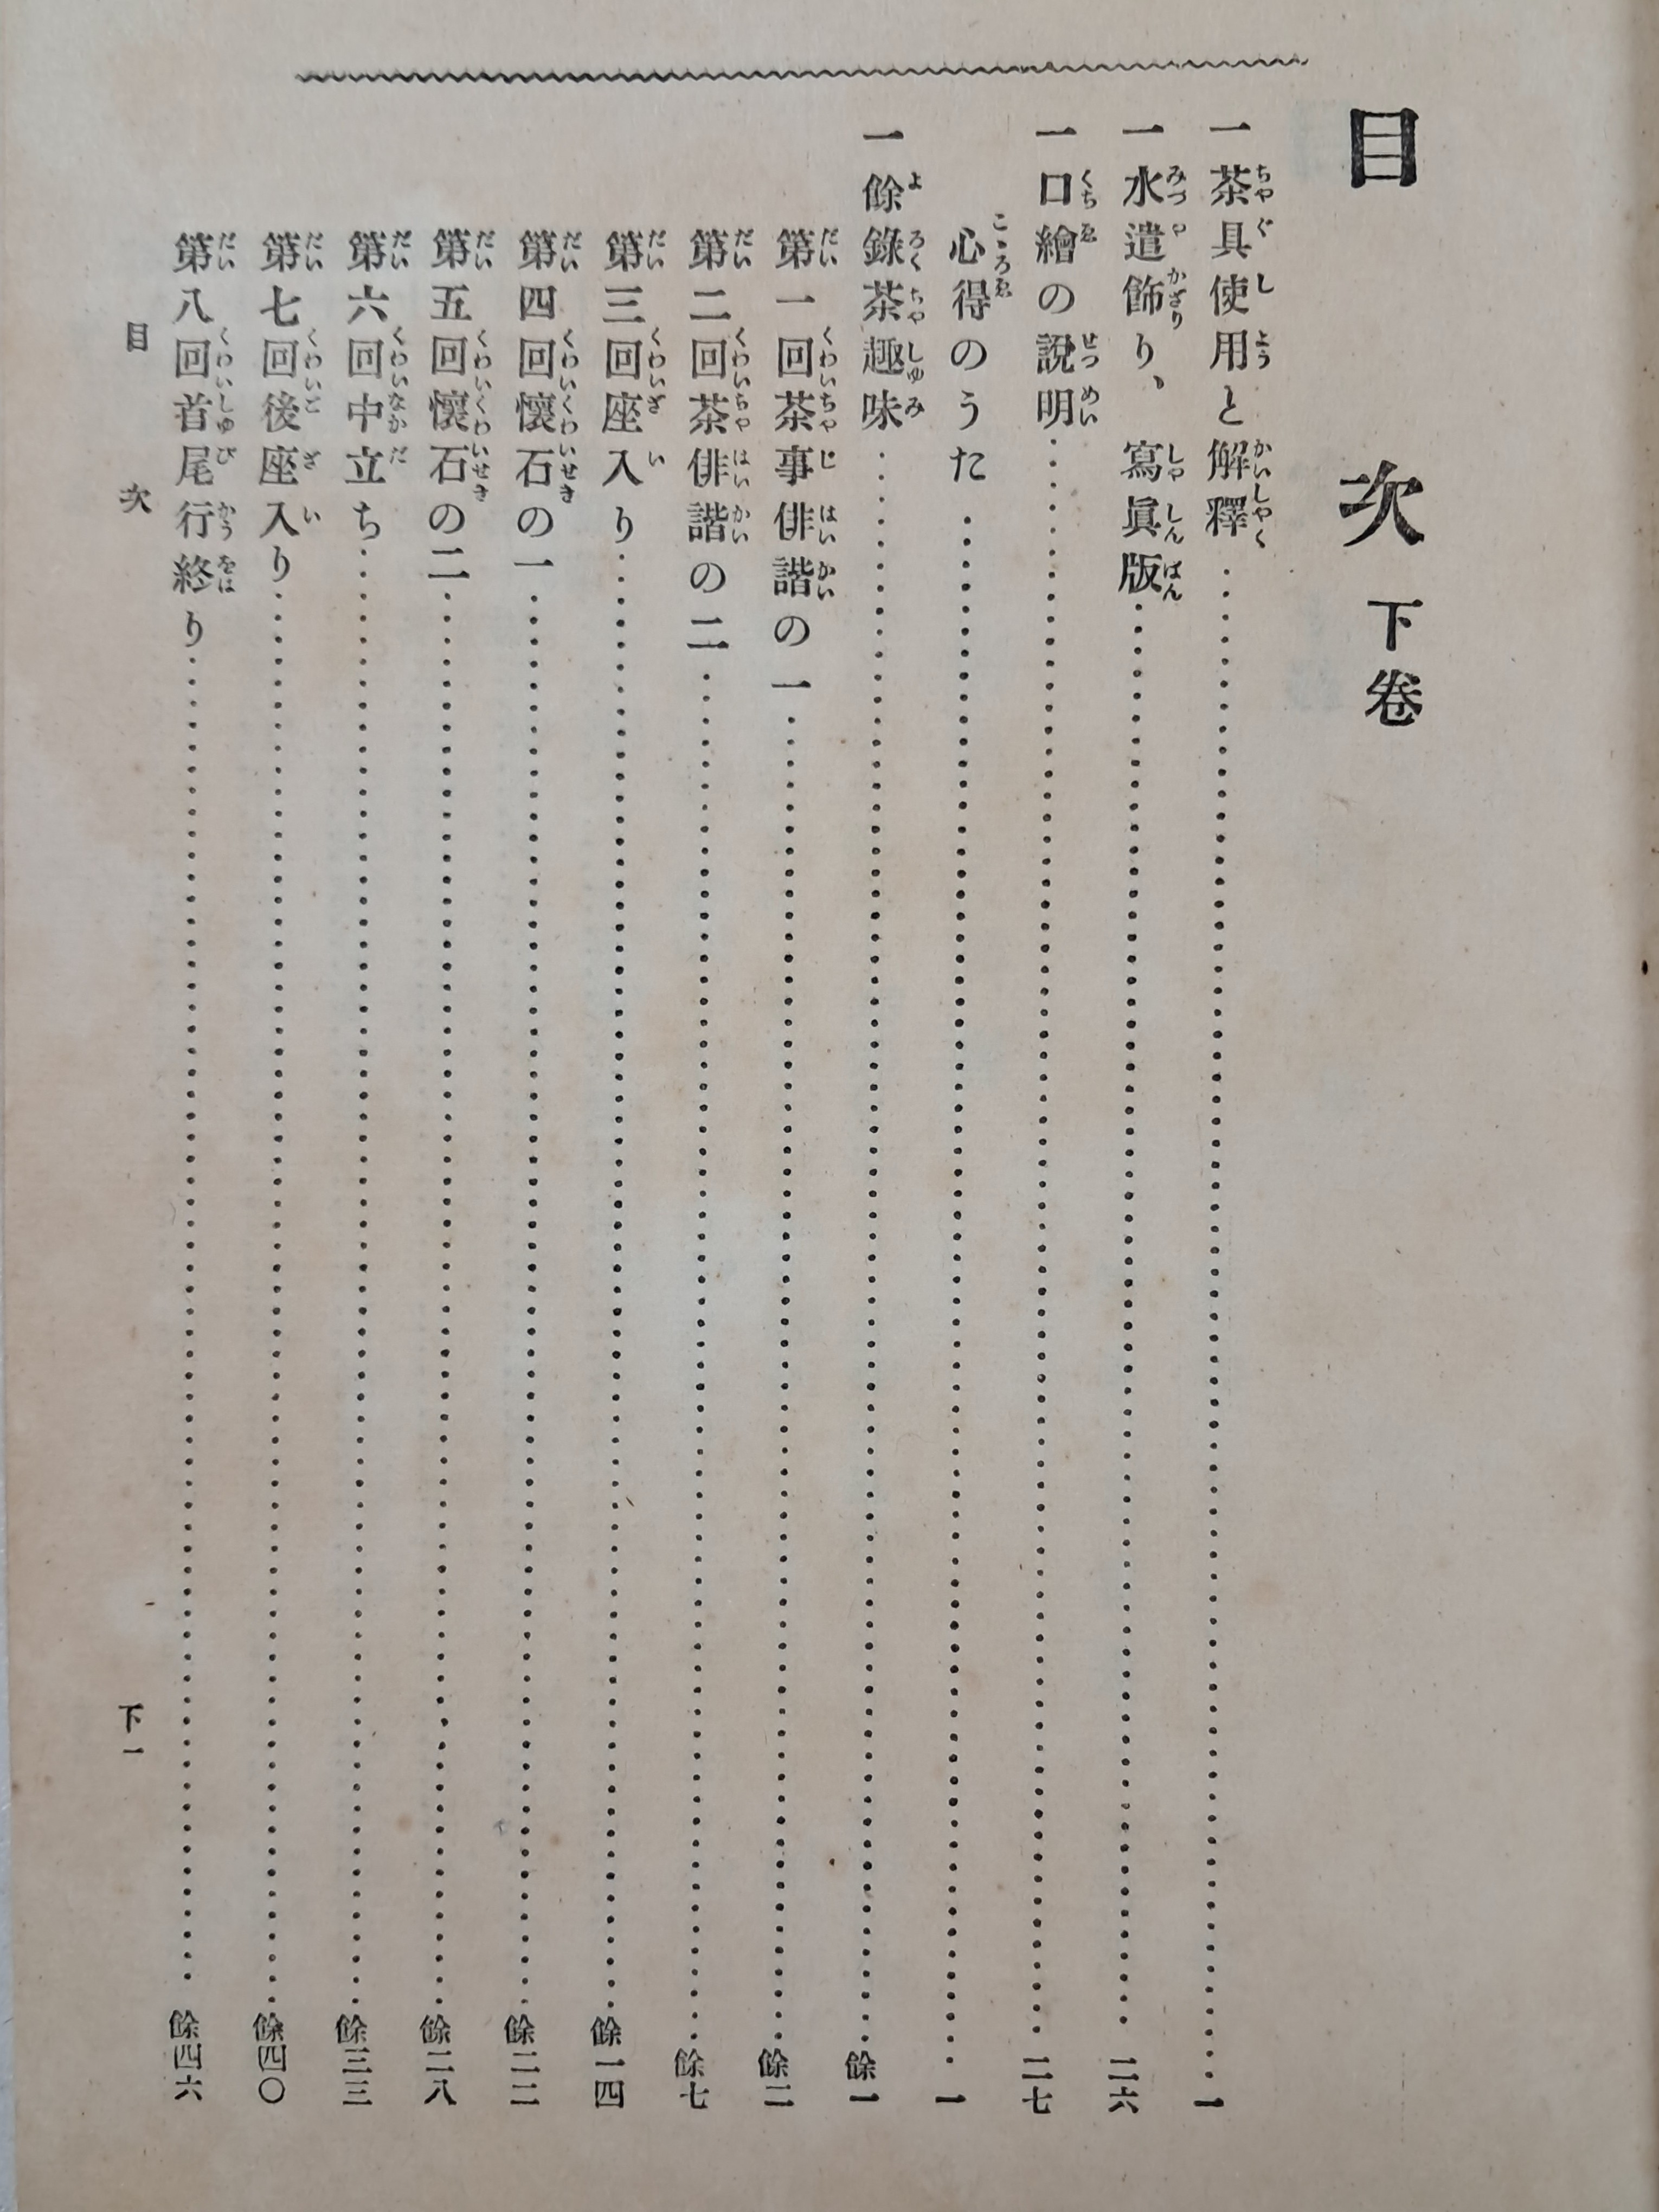 目次 下卷
一 茶具使用と解釋……一
一 水遣飾り、寫眞版……二六
一 口繪の說明……二七
心得のうた……一
一 餘錄茶趣味……餘一
第一回茶事俳諧の一……餘二
第二回茶俳諧の二……餘七
第三回座入り……餘一四
第四回懷石の一……餘二二
第五回懷石の二……餘二八
第六回中立ち……餘三三
第七回後座入り……餘四〇
第八回首尾行終り……餘四六
目次 下一